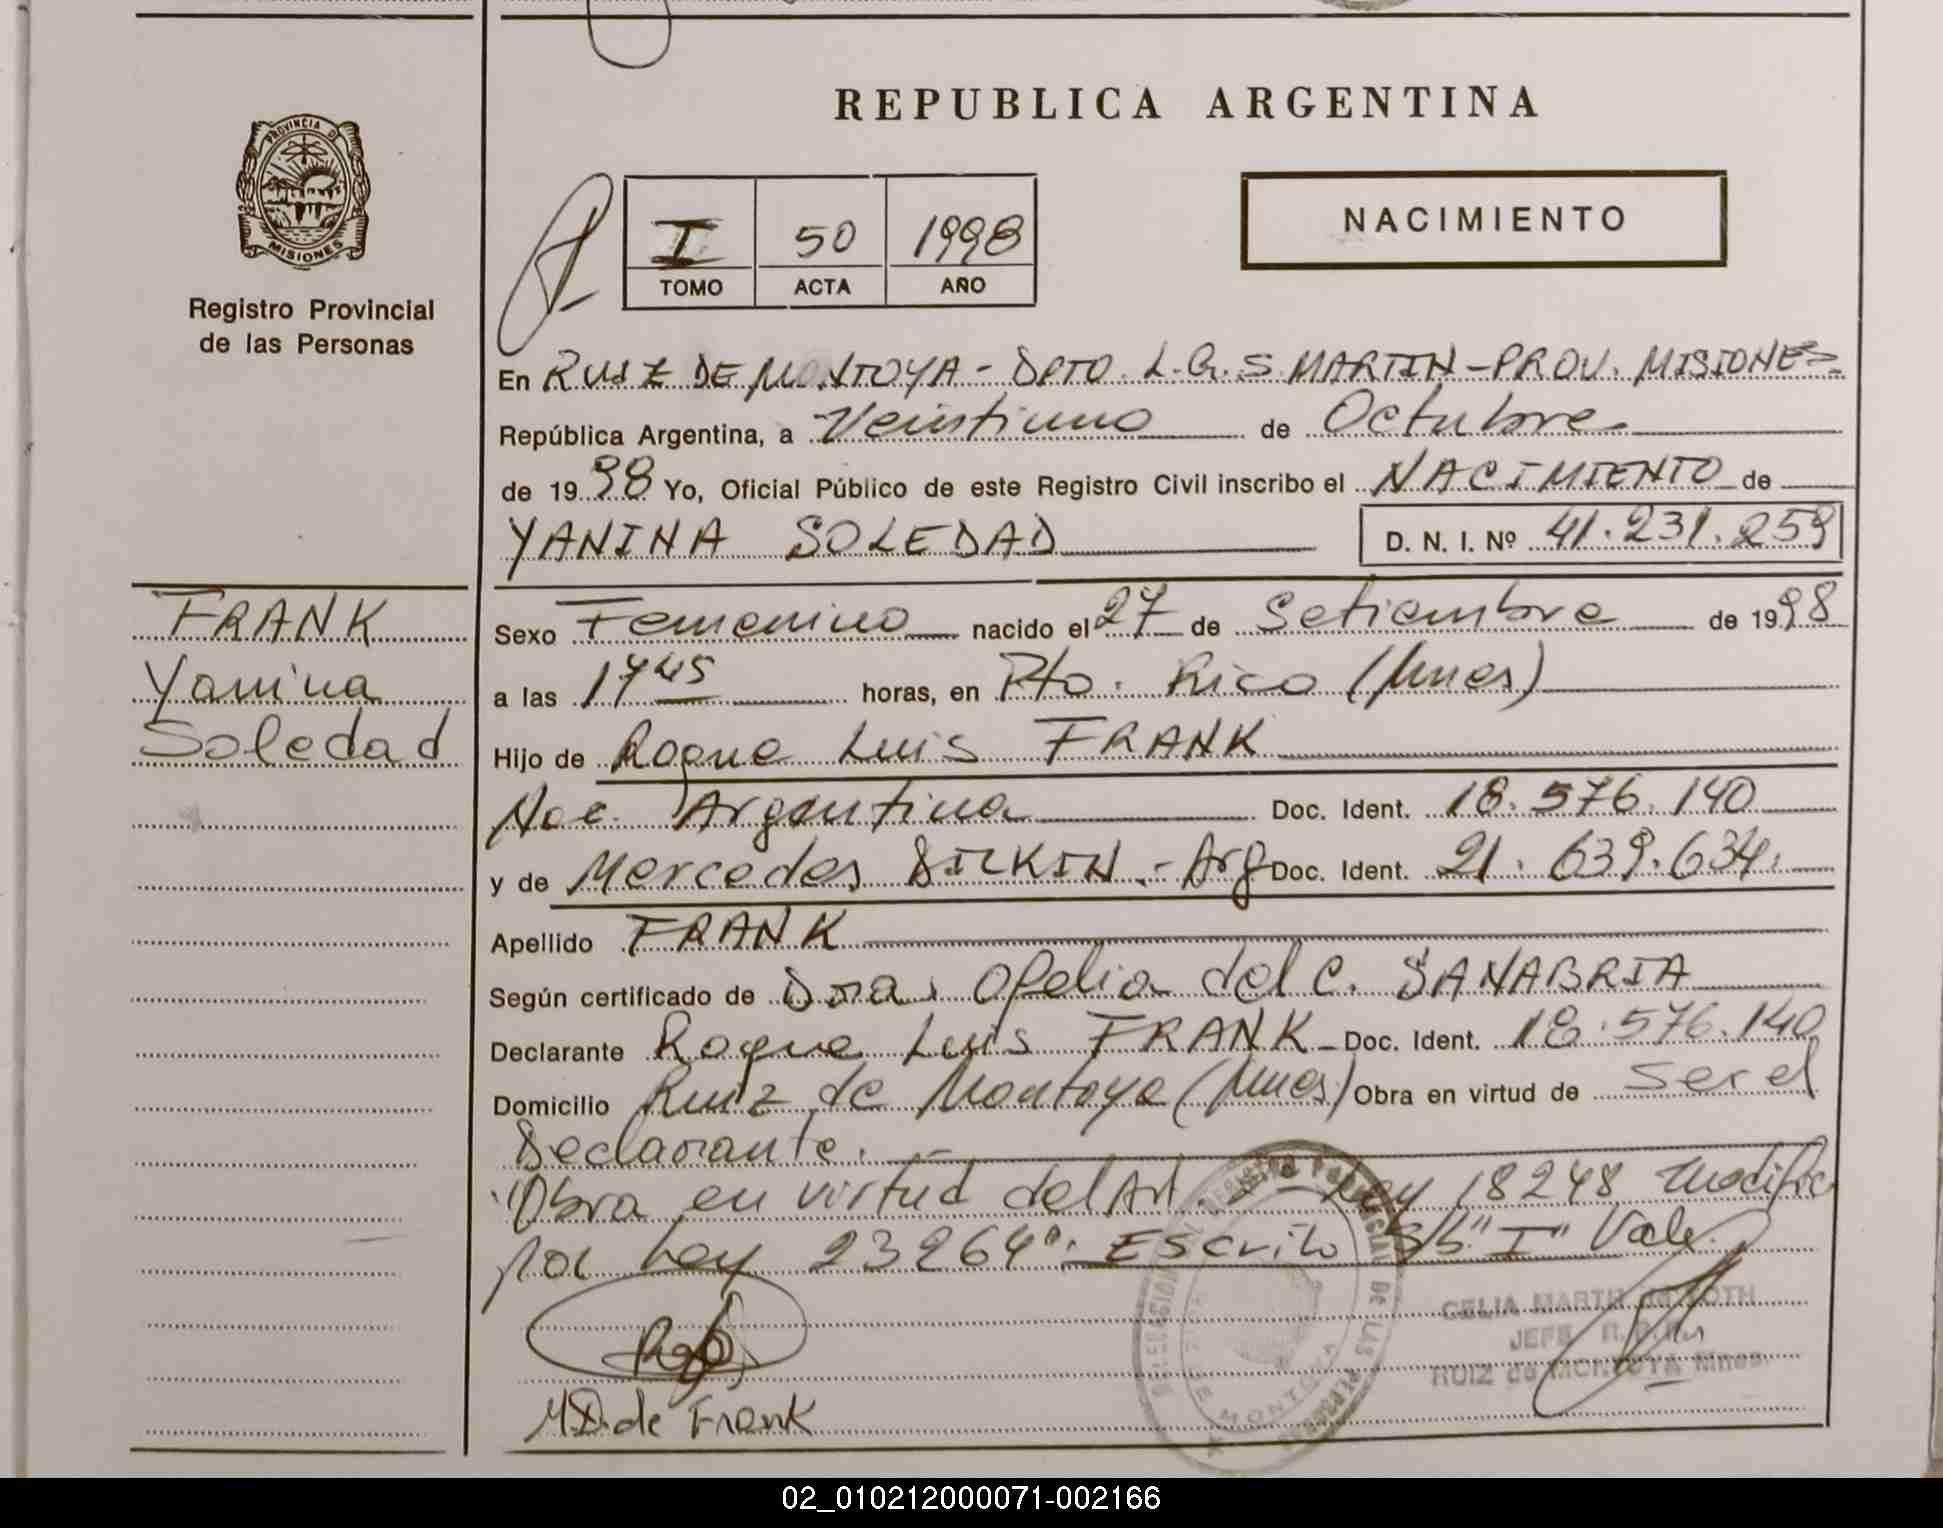 REPUBLICA ARGENTINA
PROVINCIA DE
MISIONES
Registro Provincial
de las Personas
I 50 1998
TOMO ACTA AÑO
NACIMIENTO
En RUIZ DE MONTOYA - DPTO. L.G.S. MARTIN - PROV. MISIONES
República Argentina, a Veintiuno de Octubre
de 1998 Yo, Oficial Público de este Registro Civil inscribo el NACIMIENTO de
YANINA SOLEDAD D. N. I. Nº 41.231.259
FRANK
Yanina
Soledad
Sexo Femenino nacido el 27 de Setiembre de 1998
a las 17 45 horas, en Pto. Rico (Mnes)
Hijo de Roque Luis FRANK
Nac. Argentina Doc. Ident. 18.576.140
y de Mercedes DILKIN.- Arg Doc. Ident. 21.639.634.
Apellido FRANK
Según certificado de Dra. Ofelia del C. SANABRIA
Declarante Roque Luis FRANK - Doc. Ident. 18.576.140
Domicilio Ruiz de Montoya (Mnes) Obra en virtud de Ser el
Declarante. -
"Obra en virtud del Art. Ley 18248 Modific
por Ley 23264". Escrito S/b "I" Vale.
CELIA MARTH de ROTH
JEFE R.P.P.
RUIZ de MONTOYA Mnes.
MD. de Frank
02_010212000071-002166